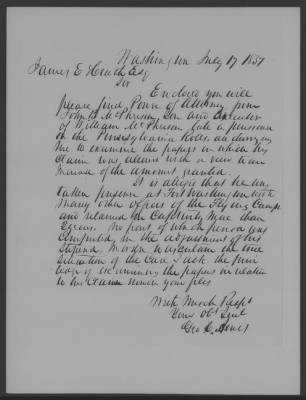 Washington July 17 1857
James E Heath Esq
Sir
Enclosed you will
please find Power of Attorney from
John B. McPherson Son and Executor
of William McPherson late a pensioner
on the Pennsylvania Rolls, authorizing
me to examine the papers in which his
Claim was allowed with a view to an
increase of the amount granted.
It is alleged that he was
taken prisoner at Fort Washington with
many other officers of the Flying Camp
and retained in Captivity more than
years. No part of which period was
computed in the adjustment of his
Stipend. To
of the Case I ask the privi
lege of examining the papers in relation
to his Claim among your files
With Much Respt
Your Obt Servt
Geo C. Ames